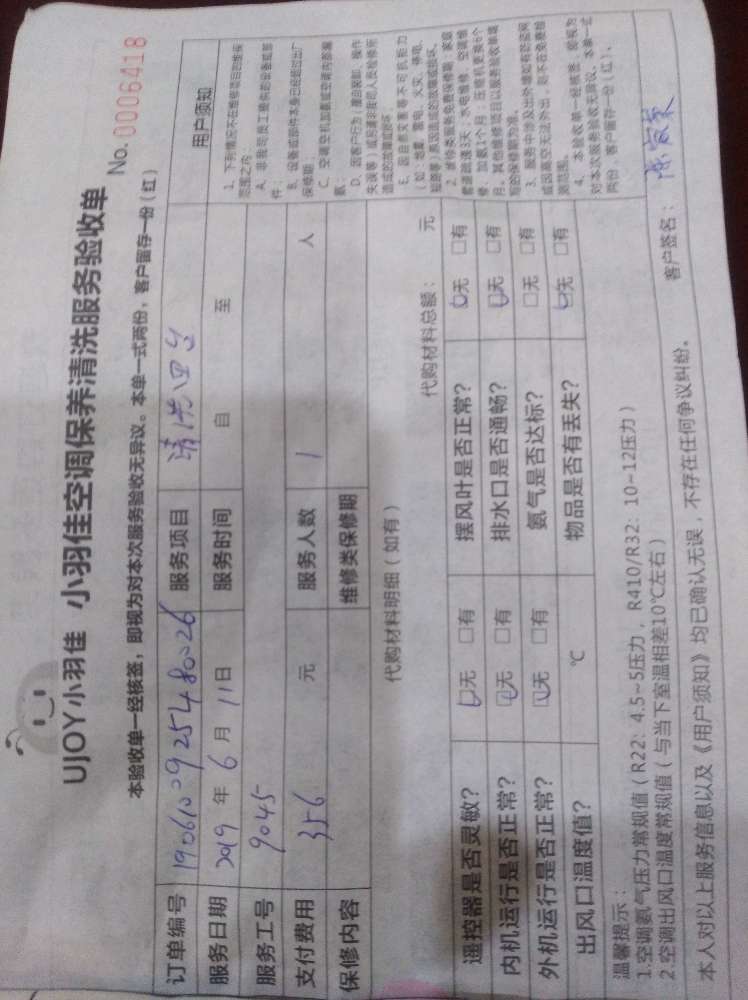 UJOY小羽佳 小羽佳空调保养清洗服务验收单
No. 0006418
本验收单一经核签，即视为对本次服务验收无异议。本单一式两份，客户留存一份（红）
订单编号 190610092548026 服务项目 清洗四台
服务日期 2019 年 6 月 11 日 服务时间 自 至
服务工号 9045
支付费用 356 元 服务人数 1 人
保修内容 维修类保修期
用户须知
1. 下列情况不在维修项目的维保范围之内：
A. 非我司员工提供的设备或部件；
B. 设备或部件本身已经超过出厂保修期；
C. 空调空机加氨或空调内部漏氨；
D. 因客户行为（擅自装卸、操作失误等）或另请非我司人员检修所造成的故障或损坏；
E. 因自然灾害等不可抗拒力（如：地震、雷电、火灾、停电、短路等）原因造成的故障或损坏。
2. 维修类服务免费保修期：家庭管道疏通3天，水电维修、空调维修、加氨1个月；压缩机更换6个月。其他维修项目以服务验收单填写的保修期为准。
3. 服务中涉及出外墙如有防盗网或因高空无法外出，则不在免费检测范围。
4. 本验收单一经核签，即视为对本次服务验收无异议。本单一式两份，客户留存一份（红）。
代购材料明细（如有） 代购材料总额： 元
遥控器是否灵敏? □无 □有 摆风叶是否正常? □无 □有
内机运行是否正常? □无 □有 排水口是否通畅? □无 □有
外机运行是否正常? □无 □有 氨气是否达标? □无 □有
出风口温度值? ℃ 物品是否有丢失? □无 □有
温馨提示：
1.空调氨气压力常规值（R22：4.5~5压力，R410/R32：10~12压力）
2.空调出风口温度常规值（与当下室温相差10℃左右）
本人对以上服务信息以及《用户须知》均已确认无误，不存在任何争议纠纷。
客户签名：